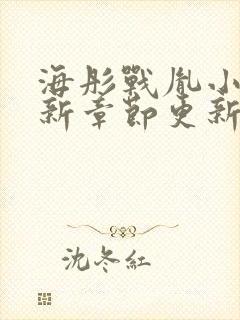 海彤戰胤小
新章節更新
沈冬紅